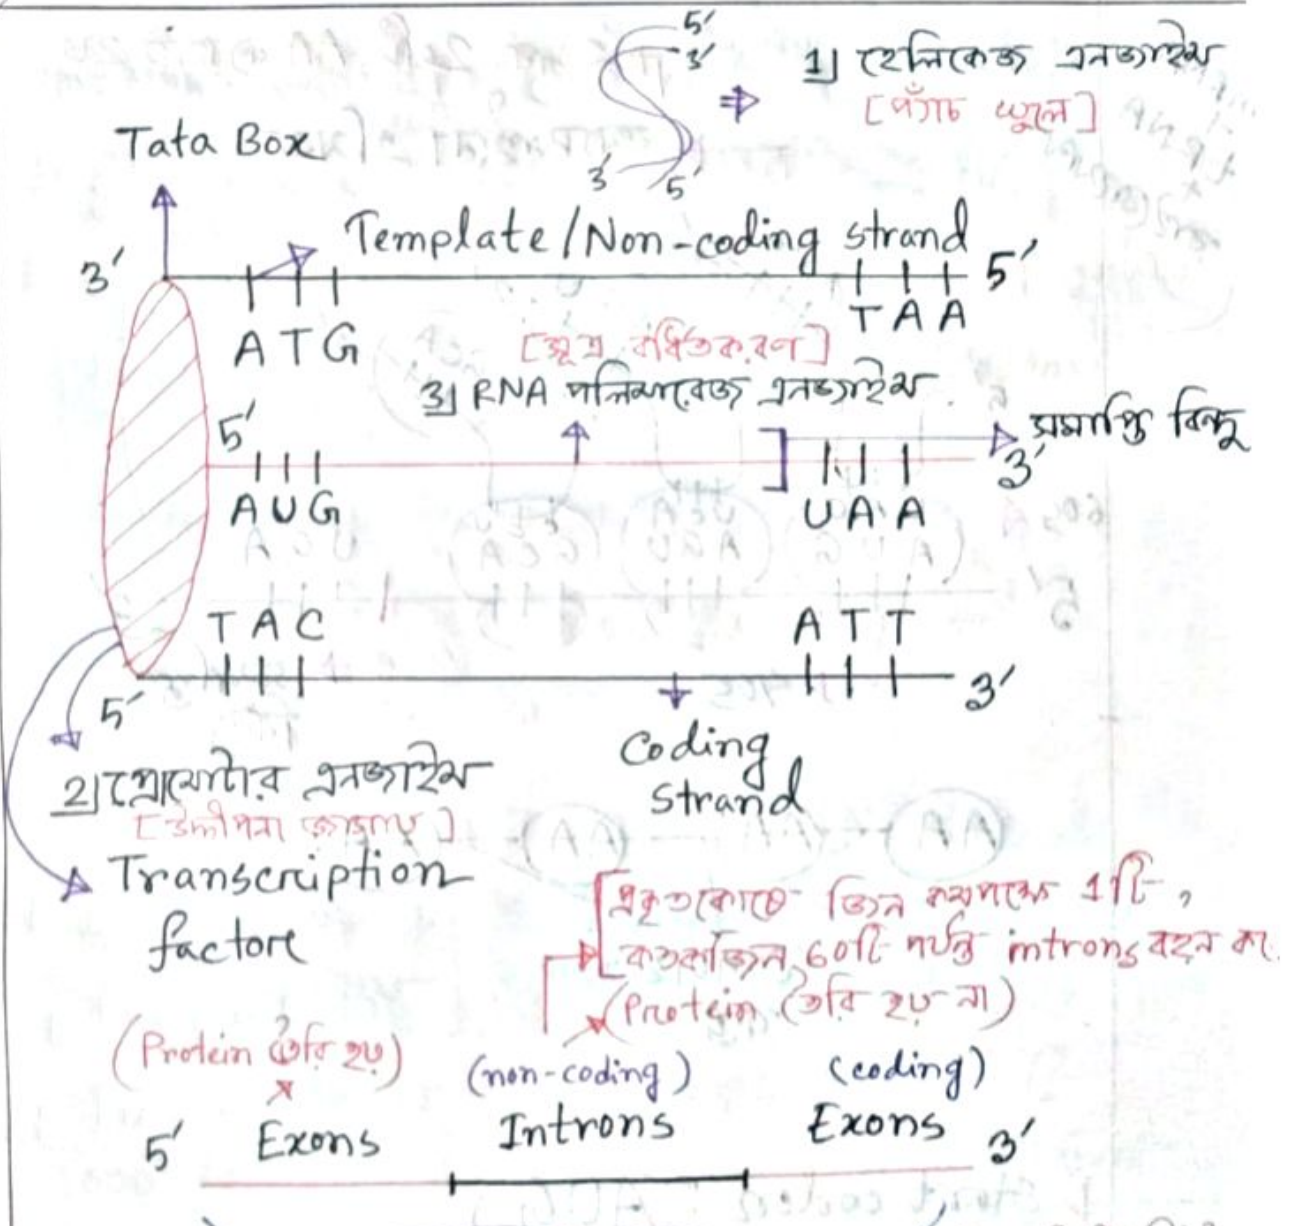 5′
3′
1) হেলিকেজ এনজাইম
[প্যাঁচ খুলে]
3′ 5′
Tata Box
Template/Non-coding strand
3′ 5′
A T G T A A
[সূত্র বর্ধিতকরণ]
3) RNA পলিমারেজ এনজাইম
5′ সমাপ্তি বিন্দু
3′
A U G U A A
T A C A T T
5′ 3′
Coding
strand
2) প্রোমোটার এনজাইম
[উদ্দীপনা জোগায়]
Transcription
factor
[প্রকৃতকোষে জিন কমপক্ষে 1টি,
কতক জিন 60টি পর্যন্ত introns বহন করে
(Protein তৈরি হয় না)
(Protein তৈরি হয়)
(non-coding) (coding)
5′ Exons Introns Exons 3′